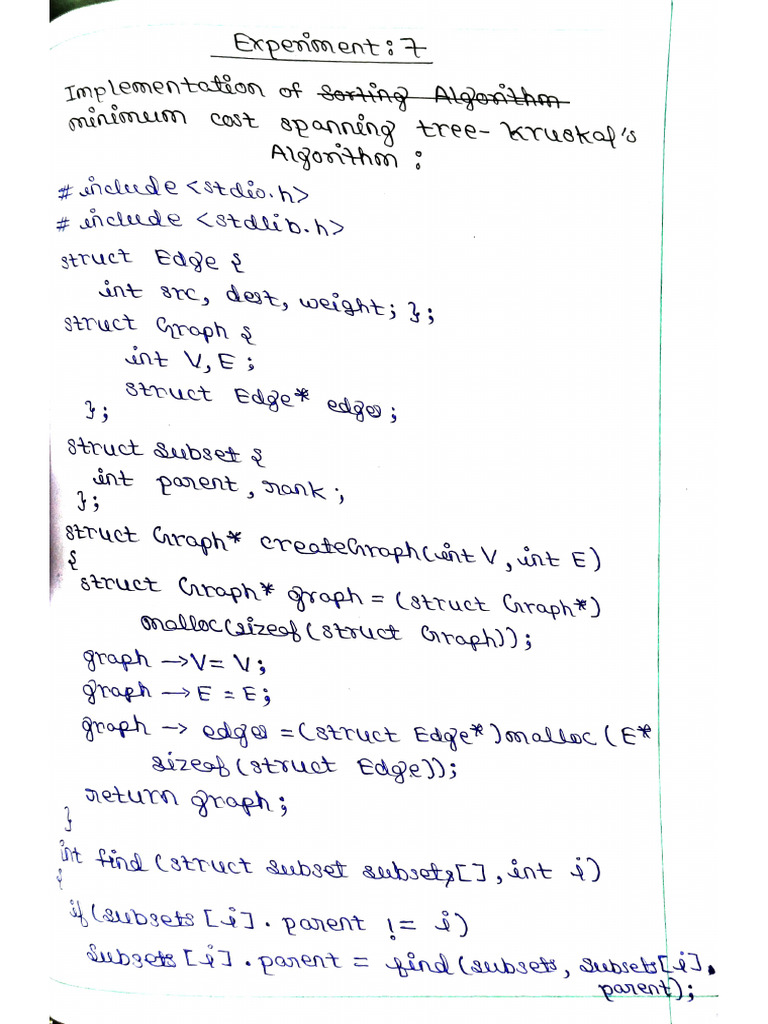 Experiment: 7
Implementation of Sorting Algorithm
minimum cost spanning tree- Kruskal's
Algorithm :
# include <stdio.h>
# include <stdlib.h>
struct Edge {
int src, dest, weight; };
struct Graph {
int V, E ;
struct Edge* edges ;
};
struct Subset {
int parent, rank ;
};
struct Graph* createGraph(int V, int E)
{
struct Graph* graph = (struct Graph*)
malloc(sizeof(struct Graph));
graph -> V = V;
graph -> E = E;
graph -> edges = (struct Edge*) malloc (E*
sizeof(struct Edge));
return graph ;
}
int find (struct subset subsets[], int i)
{
if (subsets [i]. parent != i)
subsets [i]. parent = find (subsets, subsets[i].
parent);